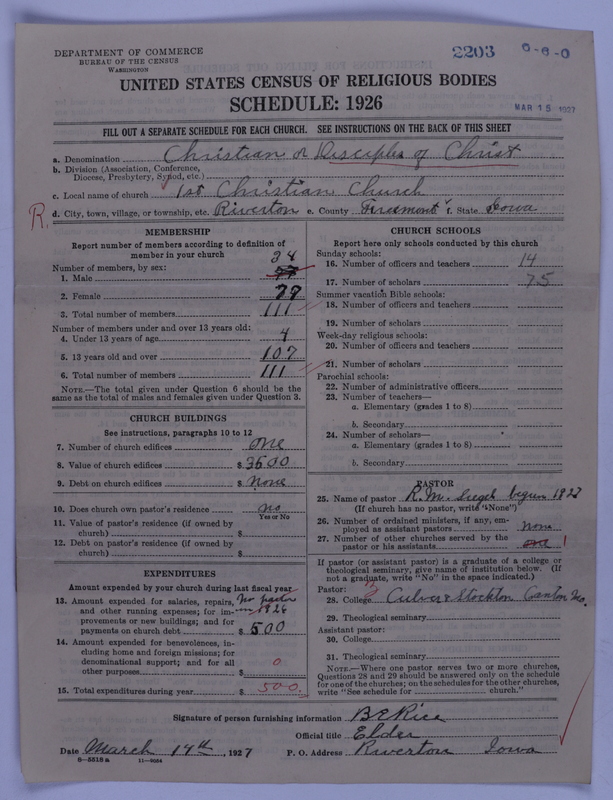 DEPARTMENT OF COMMERCE
BUREAU OF THE CENSUS
WASHINGTON
2203
0-6-0
MAR 15 1927
UNITED STATES CENSUS OF RELIGIOUS BODIES
SCHEDULE: 1926
FILL OUT A SEPARATE SCHEDULE FOR EACH CHURCH. SEE INSTRUCTIONS ON THE BACK OF THIS SHEET
a. Denomination Christian or Disciples of Christ
b. Division (Association, Conference,
Diocese, Presbytery, Synod, etc.)
c. Local name of church 1st Christian Church
R. d. City, town, village, or township, etc. Riverton e. County Freemont f. State Iowa
MEMBERSHIP
Report number of members according to definition of
member in your church
Number of members, by sex: 34
1. Male 77
2. Female 77
3. Total number of members 111
Number of members under and over 13 years old:
4. Under 13 years of age 4
5. 13 years old and over 107
6. Total number of members 111
NOTE.—The total given under Question 6 should be the
same as the total of males and females given under Question 3.
CHURCH BUILDINGS
See instructions, paragraphs 10 to 12
7. Number of church edifices one
8. Value of church edifices $ 3500
9. Debt on church edifices $ none
10. Does church own pastor's residence no
Yes or No
11. Value of pastor's residence (if owned by
church) $
12. Debt on pastor's residence (if owned by
church) $
EXPENDITURES
Amount expended by your church during last fiscal year
13. Amount expended for salaries, repairs, No pastor
and other running expenses; for im- in 1926
provements or new buildings; and for
payments on church debt $ 500
14. Amount expended for benevolences, in-
cluding home and foreign missions; for
denominational support; and for all 0
other purposes $
15. Total expenditures during year $ 500.
CHURCH SCHOOLS
Report here only schools conducted by this church
Sunday schools:
16. Number of officers and teachers 14
17. Number of scholars 75
Summer vacation Bible schools:
18. Number of officers and teachers
19. Number of scholars
Week-day religious schools:
20. Number of officers and teachers
21. Number of scholars
Parochial schools:
22. Number of administrative officers
23. Number of teachers—
a. Elementary (grades 1 to 8)
b. Secondary
24. Number of scholars—
a. Elementary (grades 1 to 8)
b. Secondary
PASTOR
25. Name of pastor R. M. begun 1927
(If church has no pastor, write "None")
26. Number of ordained ministers, if any, em-
ployed as assistant pastors none
27. Number of other churches served by the
pastor or his assistants one 1
If pastor (or assistant pastor) is a graduate of a college or
theological seminary, give name of institution below. (If
not a graduate, write "No" in the space indicated.)
Pastor:
28. College Culver & Stockton Canton Mo.
29. Theological seminary
Assistant pastor:
30. College
31. Theological seminary
NOTE.—Where one pastor serves two or more churches,
Questions 28 and 29 should be answered only on the schedule
for one of the churches; on the schedules for the other churches,
write "See schedule for church."
Signature of person furnishing information B E Rice
Official title Elder
Date March 14th, 1927 P. O. Address Riverton Iowa
8-5518a 11-9024